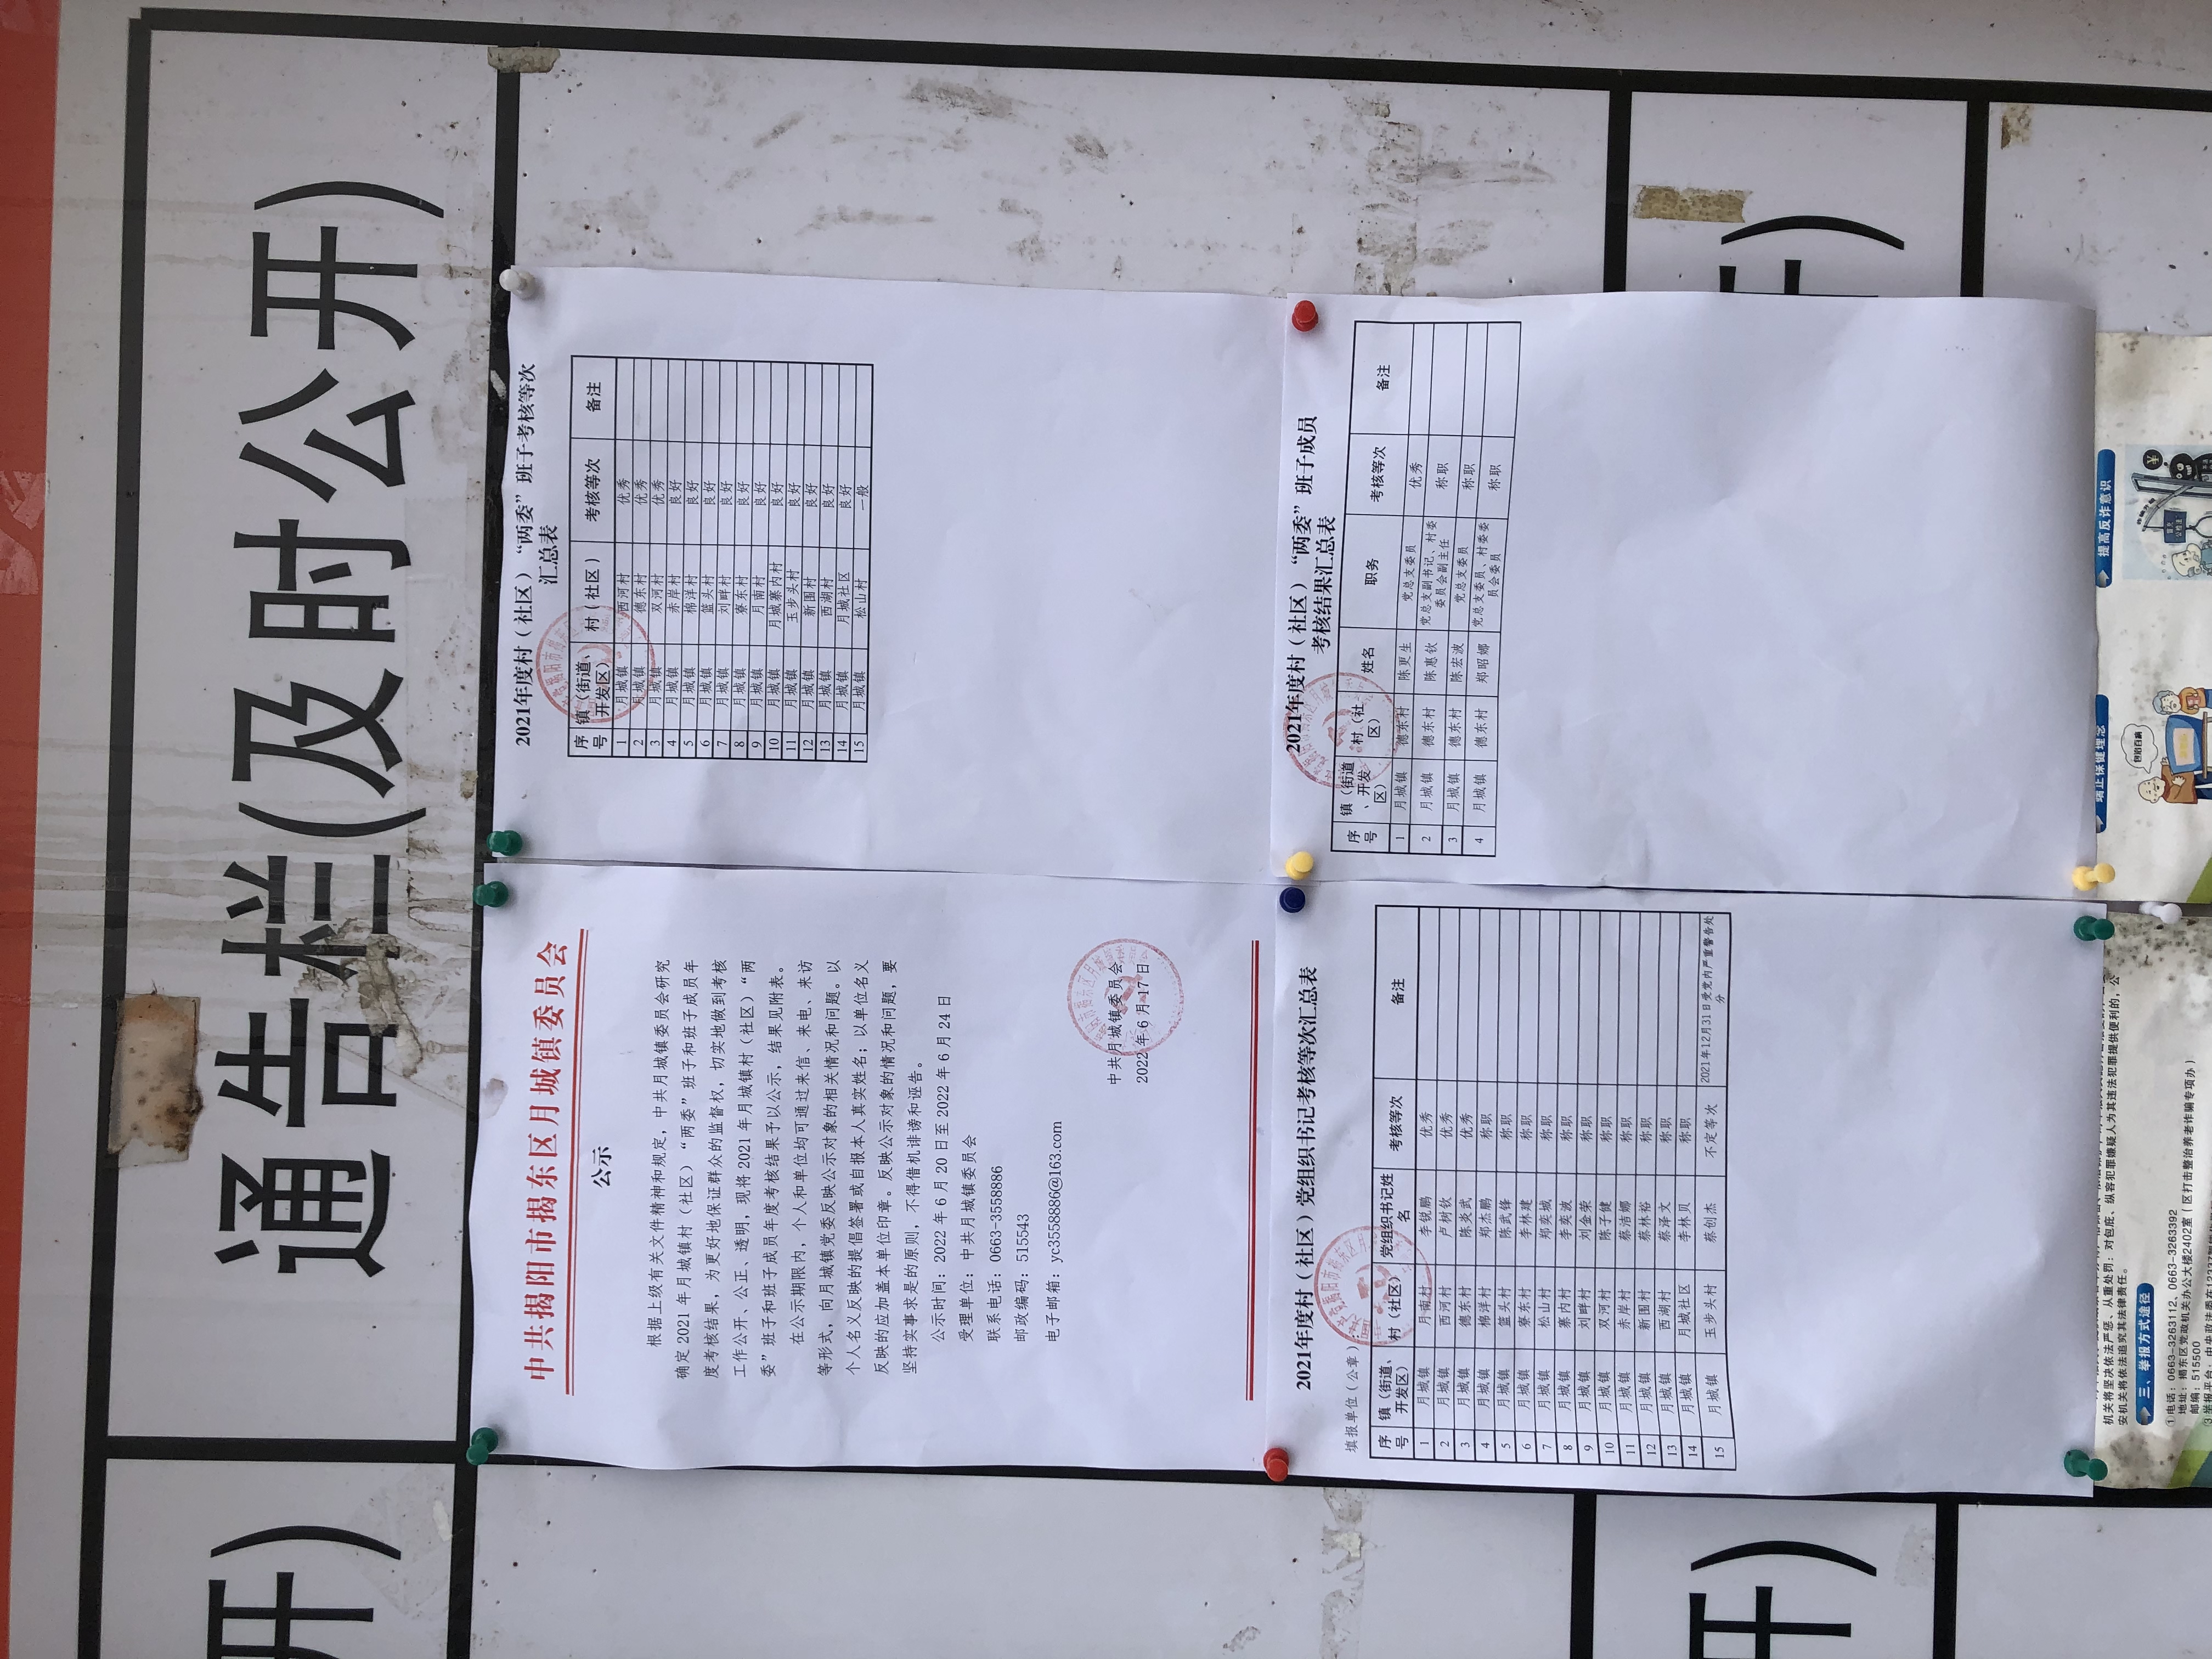 通告栏(及时公开)
开)
中共揭阳市揭东区月城镇委员会
公示
根据上级有关文件精神和规定，中共月城镇委员会研究
确定2021年月城镇村（社区）“两委”班子和班子成员年
度考核结果，为更好地保证群众的监督权，切实地做到考核
工作公开、公正、透明，现将2021年月城镇村（社区）“两
委”班子和班子成员年度考核结果予以公示，结果见附表。
在公示期限内，个人和单位均可通过来信、来电、来访
等形式，向月城镇党委反映公示对象的相关情况和问题。以
个人名义反映的提倡签署或自报本人真实姓名；以单位名义
反映的应加盖本单位印章。反映公示对象的情况和问题，要
坚持实事求是的原则，不得借机诽谤和诬告。
公示时间：2022年6月20日至2022年6月24日
受理单位：中共月城镇委员会
联系电话：0663-3558886
邮政编码：515543
电子邮箱：yc3558886@163.com
中共月城镇委员会
2022年6月17日
2021年度村（社区）“两委”班子考核等次
汇总表
序号 镇（街道、开发区） 村（社区） 考核等次 备注
1 月城镇 西河村 优秀
2 月城镇 德东村 优秀
3 月城镇 双河村 优秀
4 月城镇 赤岸村 良好
5 月城镇 棉洋村 良好
6 月城镇 篮头村 良好
7 月城镇 刘畔村 良好
8 月城镇 寮东村 良好
9 月城镇 月南村 良好
10 月城镇 月城寨内村 良好
11 月城镇 玉步头村 良好
12 月城镇 新围村 良好
13 月城镇 西湖村 良好
14 月城镇 月城社区 良好
15 月城镇 松山村 一般
2021年度村（社区）党组织书记考核等次汇总表
填报单位（公章）：
序号 镇（街道、开发区） 村（社区） 党组织书记姓名 考核等次 备注
1 月城镇 月南村 李锐鹏 优秀
2 月城镇 西河村 卢树钦 优秀
3 月城镇 德东村 陈炎武 优秀
4 月城镇 棉洋村 郑杰鹏 称职
5 月城镇 篮头村 陈武锋 称职
6 月城镇 寮东村 李林建 称职
7 月城镇 松山村 郑奕城 称职
8 月城镇 寨内村 李奕波 称职
9 月城镇 刘畔村 刘金荣 称职
10 月城镇 双河村 陈子健 称职
11 月城镇 赤岸村 蔡洁娜 称职
12 月城镇 新围村 蔡林裕 称职
13 月城镇 西湖村 蔡泽文 称职
14 月城镇 月城社区 李林贝 称职
15 月城镇 玉步头村 蔡创杰 不定等次 2021年12月31日受党内严重警告处分
2021年度村（社区）“两委”班子成员
考核结果汇总表
序号 镇（街道、开发区） 村（社区） 姓名 职务 考核等次 备注
1 月城镇 德东村 陈更生 党总支委员 优秀
2 月城镇 德东村 陈惠钦 党总支副书记、村委委员会副主任 称职
3 月城镇 德东村 陈宏波 党总支委员 称职
4 月城镇 德东村 郑昭娜 党总支委员、村委委员会委员 称职
开)
提高反诈意识
机关将坚决依法严惩、从重处罚：对包庇、纵容犯罪嫌疑人为其违法犯罪提供便利的，公
安机关将依法追究其法律责任。
三、举报方式途径
①电话：0663-3263112、0663-3263392
地址：揭东区党政机关办公大楼2402室（区打击整治养老诈骗专项办）
邮编：515500